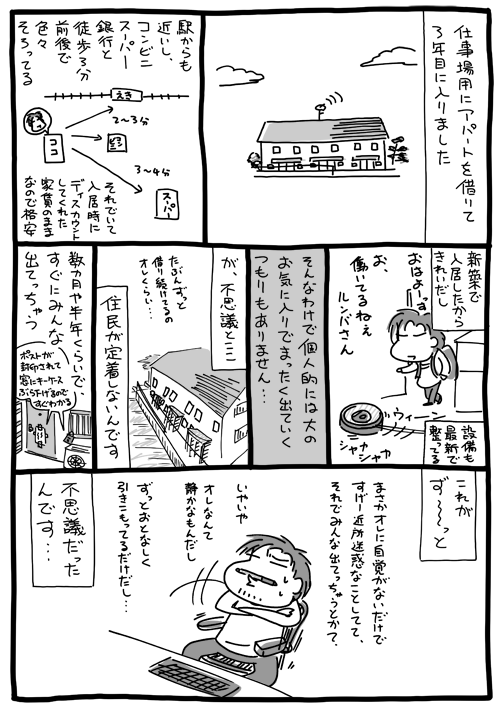 仕事場用にアパートを借りて
3年目に入りました
駅からも
近いし、
コンビニ
スーパー
銀行と
徒歩3分
前後で
色々
そろってる
えき
2〜3分
ココ
3〜4分
スーパー
それでいて
入居時に
ディスカウント
してくれた
家賃のまま
なので格安
新築で
入居したから
きれいだし
おはよーっす
お、
働いてるねぇ
ルンバさん
ウィーン
シャカ
シャカ
設備も
最新で
整ってる
そんなわけで個人的には大の
お気に入りでまったく出ていく
つもりもありません…
が、不思議とここ
住民が定着しないんです
たぶんずっと
借り続けてるの
オレくらい…
数カ月や半年くらいで
すぐにみんな
出てっちゃう
ポストが
封印されて
窓にキーケース
ぶら下げるので
すぐわかる
これが
ず〜〜っと
まさかオレに自覚がないだけで
すげー近所迷惑なことしてて、
それでみんな出てっちゃうとか?、
いやいや
オレなんて
静かなもんだし
ずっとおとなしく
引きこもってるだけだし…
不思議だった
んです…